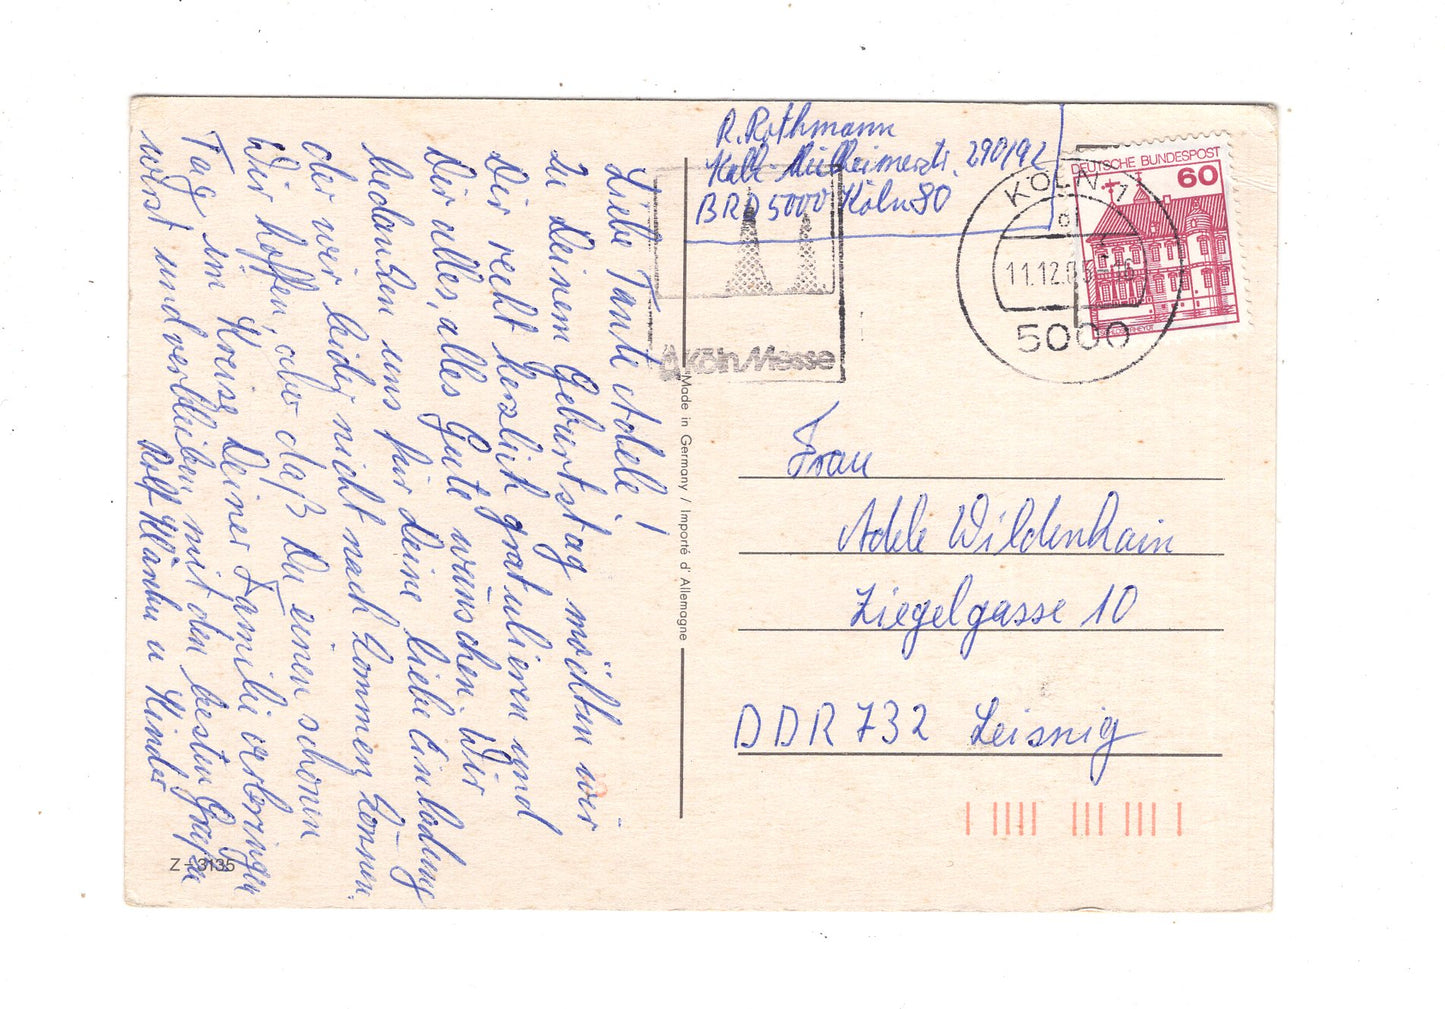 R. Rothmann
Kalk Mülheimerstr. 290/92
BRD 5000 Köln 80
DEUTSCHE BUNDESPOST
60
KÖLN 1
11.12.
5000
Köln Messe
Liebe Tante Adele!
Zu Deinem Geburtstag möchten wir
Dir recht herzlich gratulieren und
Dir alles, alles Gute wünschen. Wir
bedanken uns für Deine liebe Einladung
der wir leider nicht nach kommen können.
Wir hoffen, aber daß Du einen schönen
Tag im Kreise Deiner Familie verbringen
wirst und verbleiben mit den besten Grüßen
Rolf u Kinder
Made in Germany / Importé d'Allemagne
Frau
Adele Wildenhain
Ziegelgasse 10
DDR 732 Leisnig
Z-3135